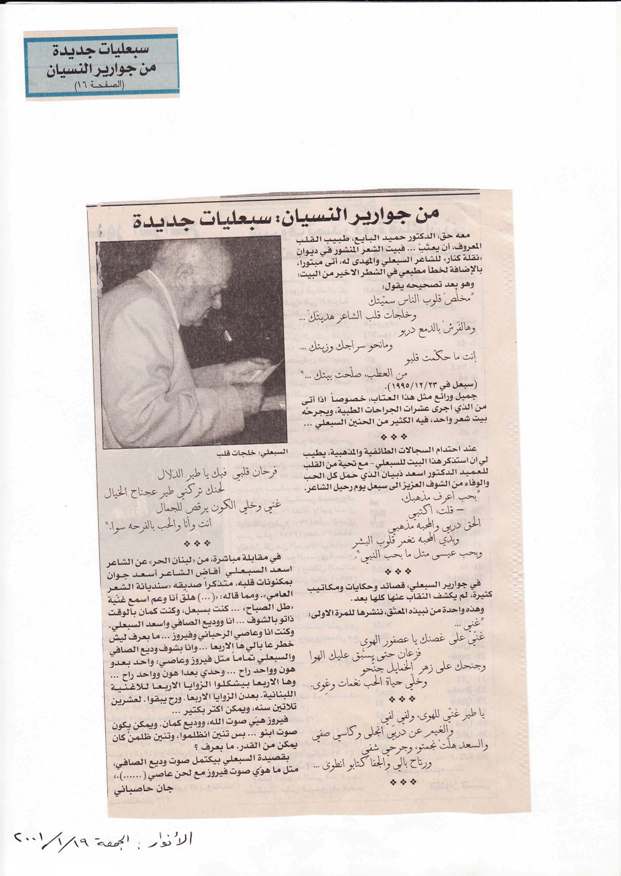 سبعليات جديدة
من جوارير النسيان
(الصفحة ١٦)
من جوارير النسيان: سبعليات جديدة
معه حق، الدكتور حميد البايع، طبيب القلب
المعروف، أن يعتب... فبيت الشعر المنشور في ديوان
«نقلة كنار» للشاعر السبعلي والمهدى له، أتى مبتورا،
بالإضافة لخطأ مطبعي في الشطر الاخير من البيت؛
وهو بعد تصحيحه يقول:
"مخلّص قلوب الناس سمّيتك
وخلجات قلب الشاعر هديتك ...
وهالفرش بالدمع دربو
ومانحو سراجك وزيتك ...
إنت ما حكّمت قلبو
من العطب، صلّحت بيتك ..."
(سبعل في ١٩٩٥/١٢/٢٣).
جميل ورائع مثل هذا العتاب، خصوصاً اذا أتى
من الذي اجرى عشرات الجراحات الطبية، ويجرحه
بيت شعر واحد، فيه الكثير من الحنين السبعلي ...
***
عند احتدام السجالات الطائفية والمذهبية، يطيب
لي أن استذكر هذا البيت للسبعلي - مع تحية من القلب
للعميد الدكتور اسعد ذبيان الذي حمل كل الحب
والوفاء من الشوف العزيز الى سبعل يوم رحيل الشاعر.
"بحب اعرف مذهبك،
- قلت: اكتبي
الحق دربي والمحبه مذهبي
وبدّي المحبه تغمر قلوب البشر
وبحب عيسى مثل ما بحب النبي"
***
في جوارير السبعلي، قصائد وحكايات ومكاتيب
كثيرة، لم يكشف النقاب عنها كلها بعد.
وهذه واحدة من نبيذه المعتّق، ننشرها للمرة الاولى:
"غنّي ...
غنّي على غصنك يا عصفور الهوى
فزعان حتى يسبق عليك الهوا
وجنحك على زهر الخمايل جنحو
وخلّي حياة الحب نغمات وغوى.
***
يا طير غنّي للهوى، ولفّي لفي
والغيم عن دربي انجلى وكاسي صفي
والسعد هلّت نجمتو، وجرحي شفي
ورتاح بالي والجفا كتابو انطوى ...
***
السبعلي: خلجات قلب
فرحان قلبي فيك يا طير الدلال
لحنك تركني طير عجناح الخيال
غنّي وخلّي الكون يرقص للجمال
انت وأنا والحب بالفرحه سوا."
***
في مقابلة مباشرة، من «لبنان الحر» عن الشاعر
اسعد السبعلي أفاض الشاعر أسعد جوان
بمكنونات قلبه، متذكرا صديقه «سنديانة الشعر
العامي». ومما قاله: «(...) هلق أنا وعم اسمع غنية
«طل الصباح» ... كنت بسبعل، وكنت كمان بالوقت
ذاتو بالشوف ... أنا ووديع الصافي واسعد السبعلي.
وكنت انا وعاصي الرحباني وفيروز ... ما بعرف ليش
خطر عا بالي ها الاربعا ... وانا بشوف وديع الصافي
والسبعلي تماماً متل فيروز وعاصي: واحد بعدو
هون وواحد راح ... وحدي بعدا هون وواحد راح ...
وها الاربعا بيشكلوا الزوايا الاربعا للاغنية
اللبنانية. بعدن الزوايا الاربعا. ورح يبقوا. لعشرين
تلاتين سنه، ويمكن اكتر بكتير ...
فيروز هيّي صوت الله، ووديع كمان. ويمكن يكون
صوت ابنو ... بس تنين انظلموا، وتنين ظلمن كان
يمكن من القدر. ما بعرف ؟
بقصيدة السبعلي بيكتمل صوت وديع الصافي،
متل ما هوّي صوت فيروز مع لحن عاصي (......)».
جان حاصباني
الأنوار : الجمعة ١٩/ ١/ ٢٠٠١